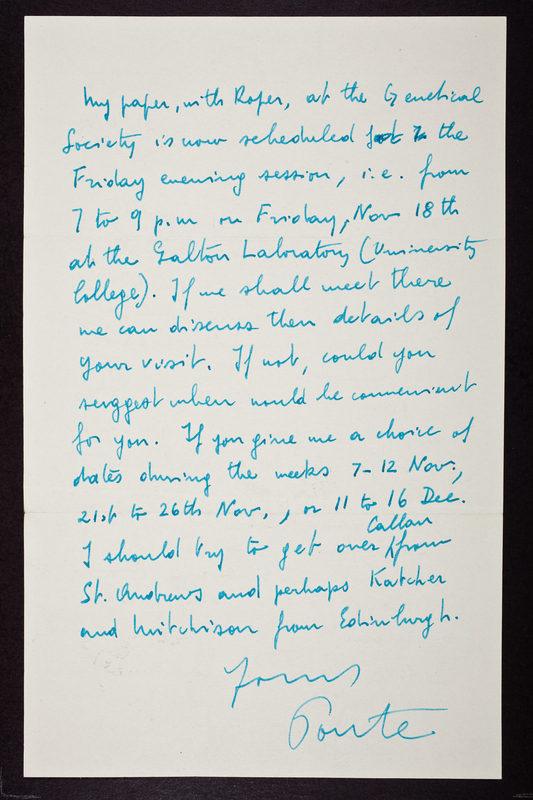 My paper, with Roper, at the Genetical
Society is now scheduled for the
Friday evening session, i.e. from
7 to 9 p.m on Friday, Nov 18th
at the Galton Laboratory (University
College). If we shall meet there
we can discuss then details of
your visit. If not, could you
suggest when would be convenient
for you. If you give me a choice of
dates during the weeks 7-12 Nov.,
21st to 26th Nov., or 11 to 16 Dec.
I should try to get over Callan from
St. Andrews and perhaps Katcher
and Mitchison from Edinburgh.
Yours
Ponte